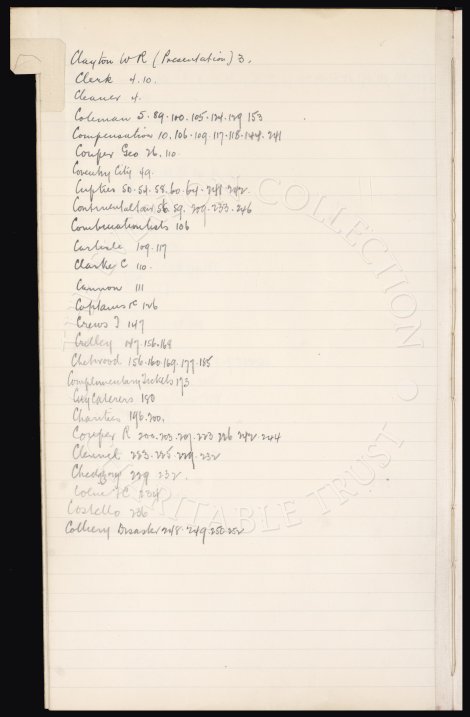 Clayton W R (Presentation) 3.
Clerk 4.10.
Cleaner 4.
Coleman 5.89.100.105.124.129 153
Compensation 10.106.109.117.118.144.241
Couper Geo 26.110.
Coventry City 49.
Cupties 50.54.58.60.64.241.242
Continental tour 56.59.209.233.246
Combination lists 106
Carlisle 109.117
Clarke C 110.
Cannon 111
Captains 126
Crews J 147
147.156.164
Chetwood 156.160.169.177.185
Complimentary Tickets 173
City Caterers 180
Charities 196.200.
Couper R 200.203.207.223 226 242.244
Clennell 223.225 229.232
Chedgzoy 229 232.
Colne FC 234
Costello 236
Colliery Disaster 248.249.250.252
COLLECTION
CHARITABLE TRUST
©